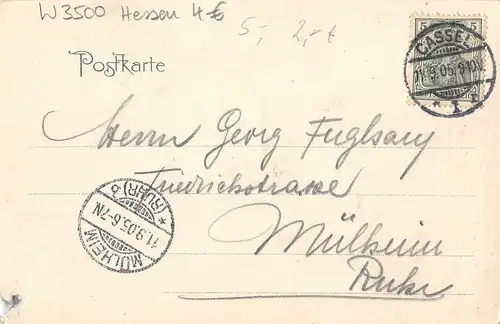 W3500 Hessen 4€
5,- 2,-
Postkarte
5 5
CASSEL
11.9.05.9-10V.
* 1 *
Herrn Georg Fuglsang
Friedrichstrasse
Mülheim
Ruhr
MÜLHEIM
11.9.05.6-7N
* (RUHR) *